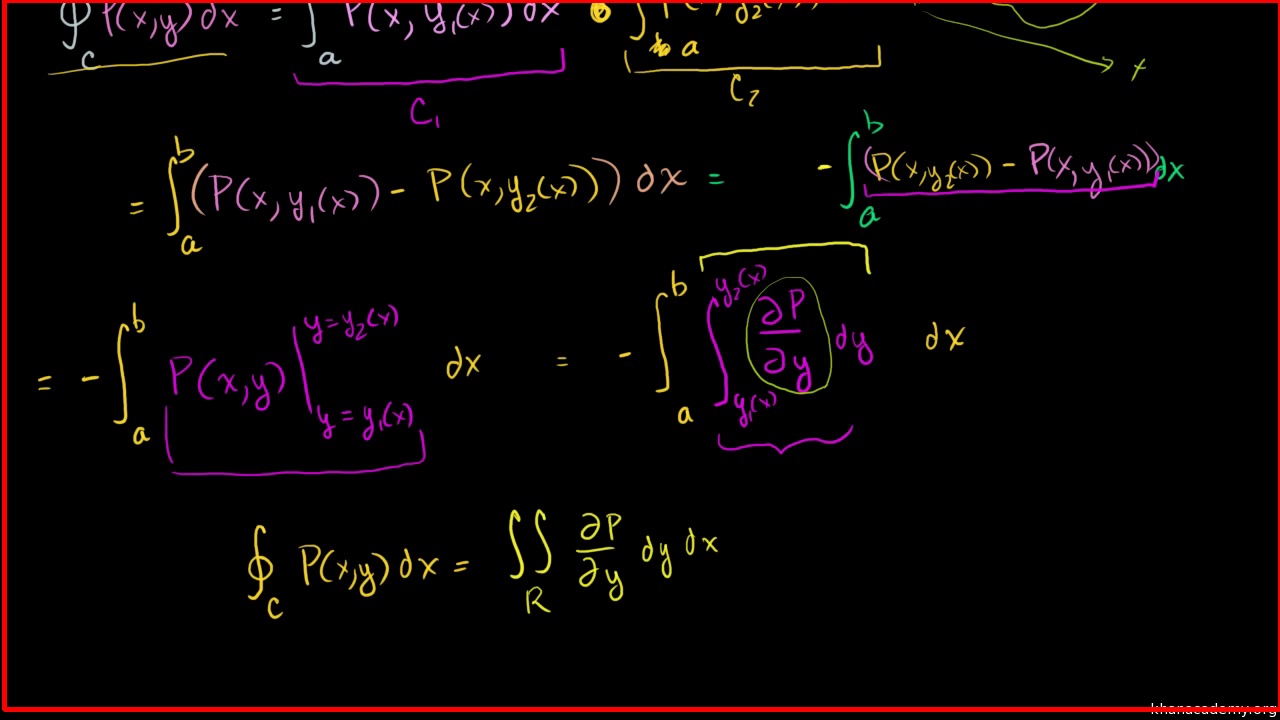 ∮_C P(x,y) dx = ∫_a P(x, y₁(x)) dx ∫_a
x
C₁ C₂
= ∫_a^b (P(x, y₁(x)) - P(x, y₂(x))) dx = - ∫_a^b (P(x, y₂(x)) - P(x, y₁(x))) dx
= - ∫_a^b P(x,y) |_{y = y₁(x)}^{y = y₂(x)} dx = - ∫_a^b ∫_{y₁(x)}^{y₂(x)} ∂P/∂y dy dx
∮_C P(x,y) dx = ∬_R ∂P/∂y dy dx
khanacademy.org